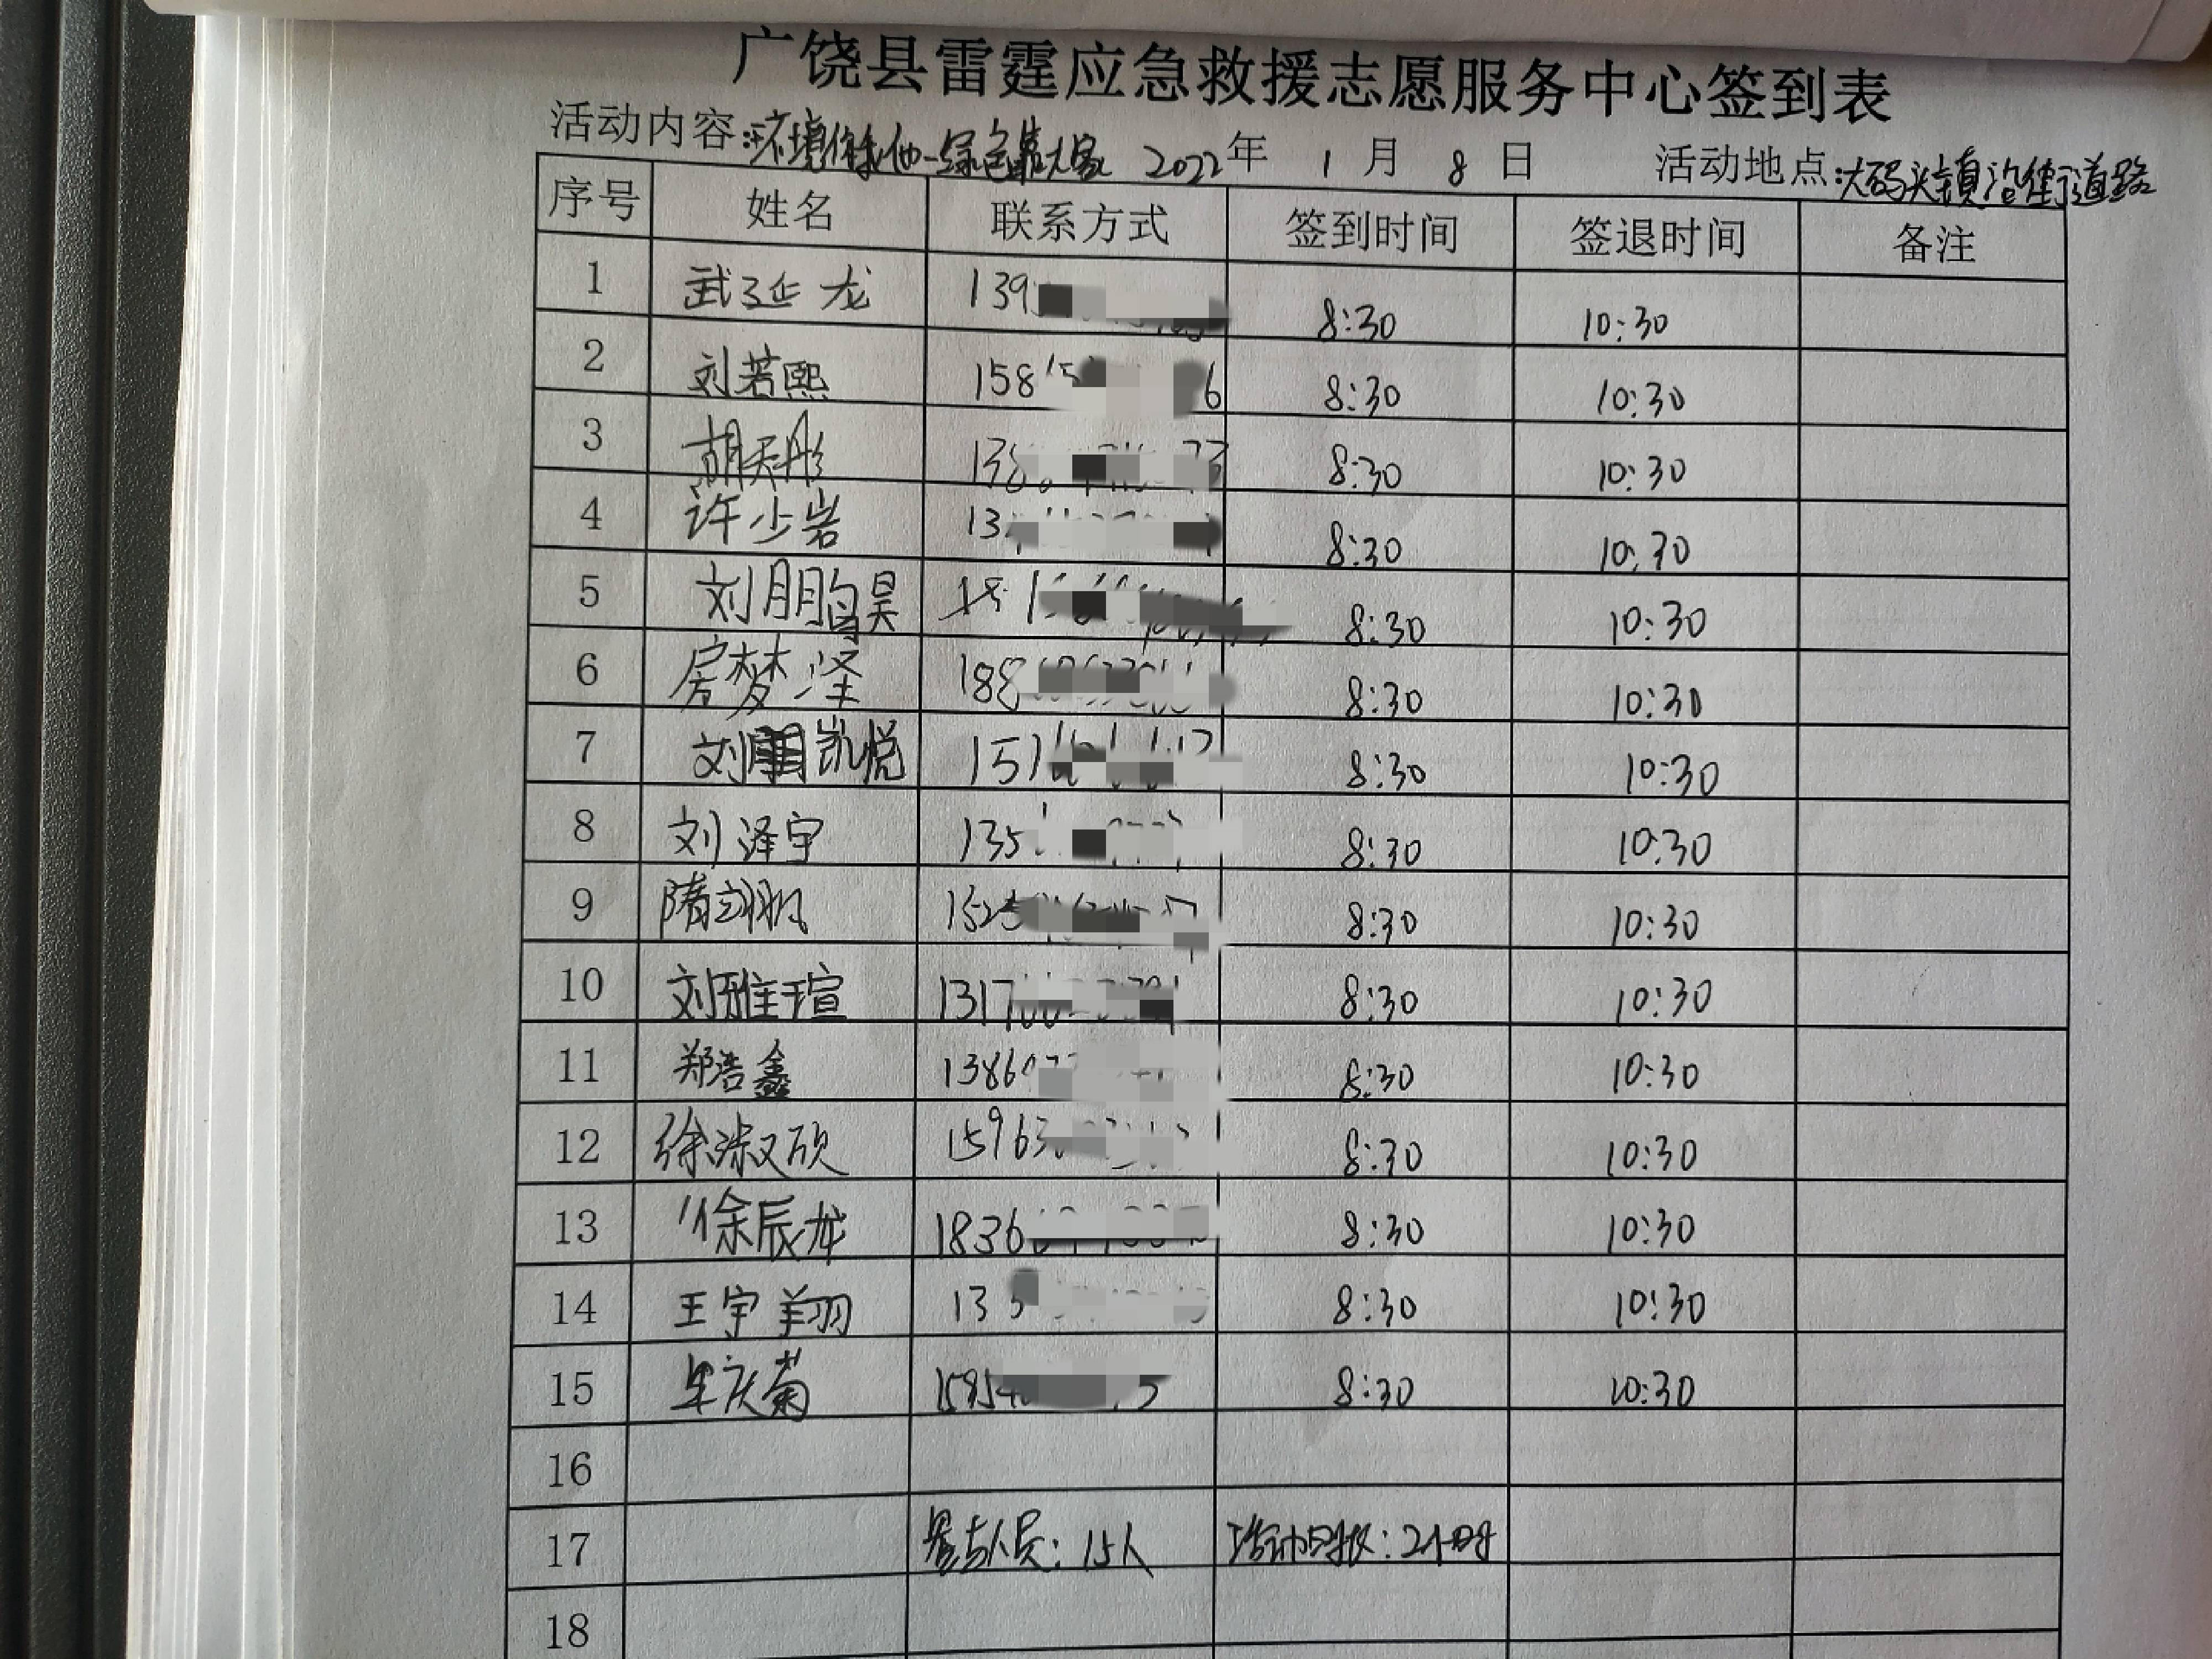 广饶县雷霆应急救援志愿服务中心签到表
活动内容:环境你我他-绿色靠大家 2022年 1月 8日 活动地点:大码头镇沿街道路
序号 姓名 联系方式 签到时间 签退时间 备注
1 武延龙 139 8:30 10:30
2 刘若熙 158 6 8:30 10:30
3 胡天彤 138 8:30 10:30
4 许少岩 13 8:30 10:30
5 刘鹏昊 8:30 10:30
6 房梦泽 188 8:30 10:30
7 刘凯悦 151 8:30 10:30
8 刘泽宇 135 8:30 10:30
9 隋翊帆 1525 8:30 10:30
10 刘雅瑄 1317 8:30 10:30
11 郑浩鑫 1386 8:30 10:30
12 徐淑欣 15963 8:30 10:30
13 徐辰龙 1836 8:30 10:30
14 王宇翔 135 8:30 10:30
15 牟庆菊 1585 8:30 10:30
16
17 参与人员:15人 活动时长:2小时
18